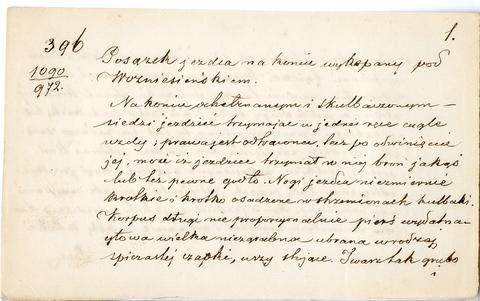 396
1090
972.
1.
Posążek jezdca na koniu wykopany pod
Wozniesieńskiem.
Na koniu okiełznanym i skulbaczonym –
siedzi jezdziec trzymając w jednej ręce cugle
uzdy; prawa jest odtrącona, lecz po odwinięciu
jej, może iż jezdziec trzymał w niej broń jakąś
lub też pewne godło. Nogi jezdca niezmiernie
krótkie i krótko osadzone w strzemionach kulbaki.
Korpus długi nie proporcyonalnie pierś wydatna
głowa wielka niezgrabna ubrana w rodzaj
spiczastej czapki, uszy stojące. Twarz tak grubo
i